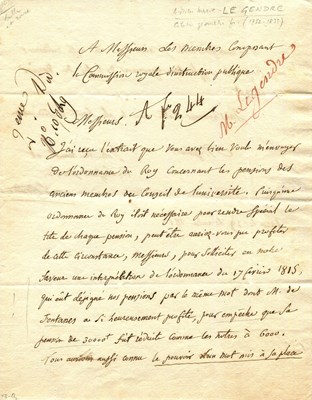 LE GENDRE
A Messieurs Les membres Composant
la Commission royale d'instruction publique
2ème Div.
Messieurs
A 244
M. Legendre
J'ai reçu l'extrait que Vous avez bien Voulu m'envoyer
de l'ordonnance du Roy Concernant les pensions des
anciens membres du Conseil de l'université. Puisqu'une
ordonnance du Roy étoit nécessaire pour rendre Spécial le
titre de chaque pension, peut être auriez vous pu profiter
de cette circonstance, Messieurs, pour solliciter en notre
faveur une interprétation de l'ordonnance du 17 février 1815,
qui ont designé nos pensions par le même mot dont M. de
Fontanes a Si heureusement profité, pour empêcher que Sa
pension de 30000f fût réduite comme les notres à 6000.
Vous aussi connu le pouvoir d'un mot mis à sa place